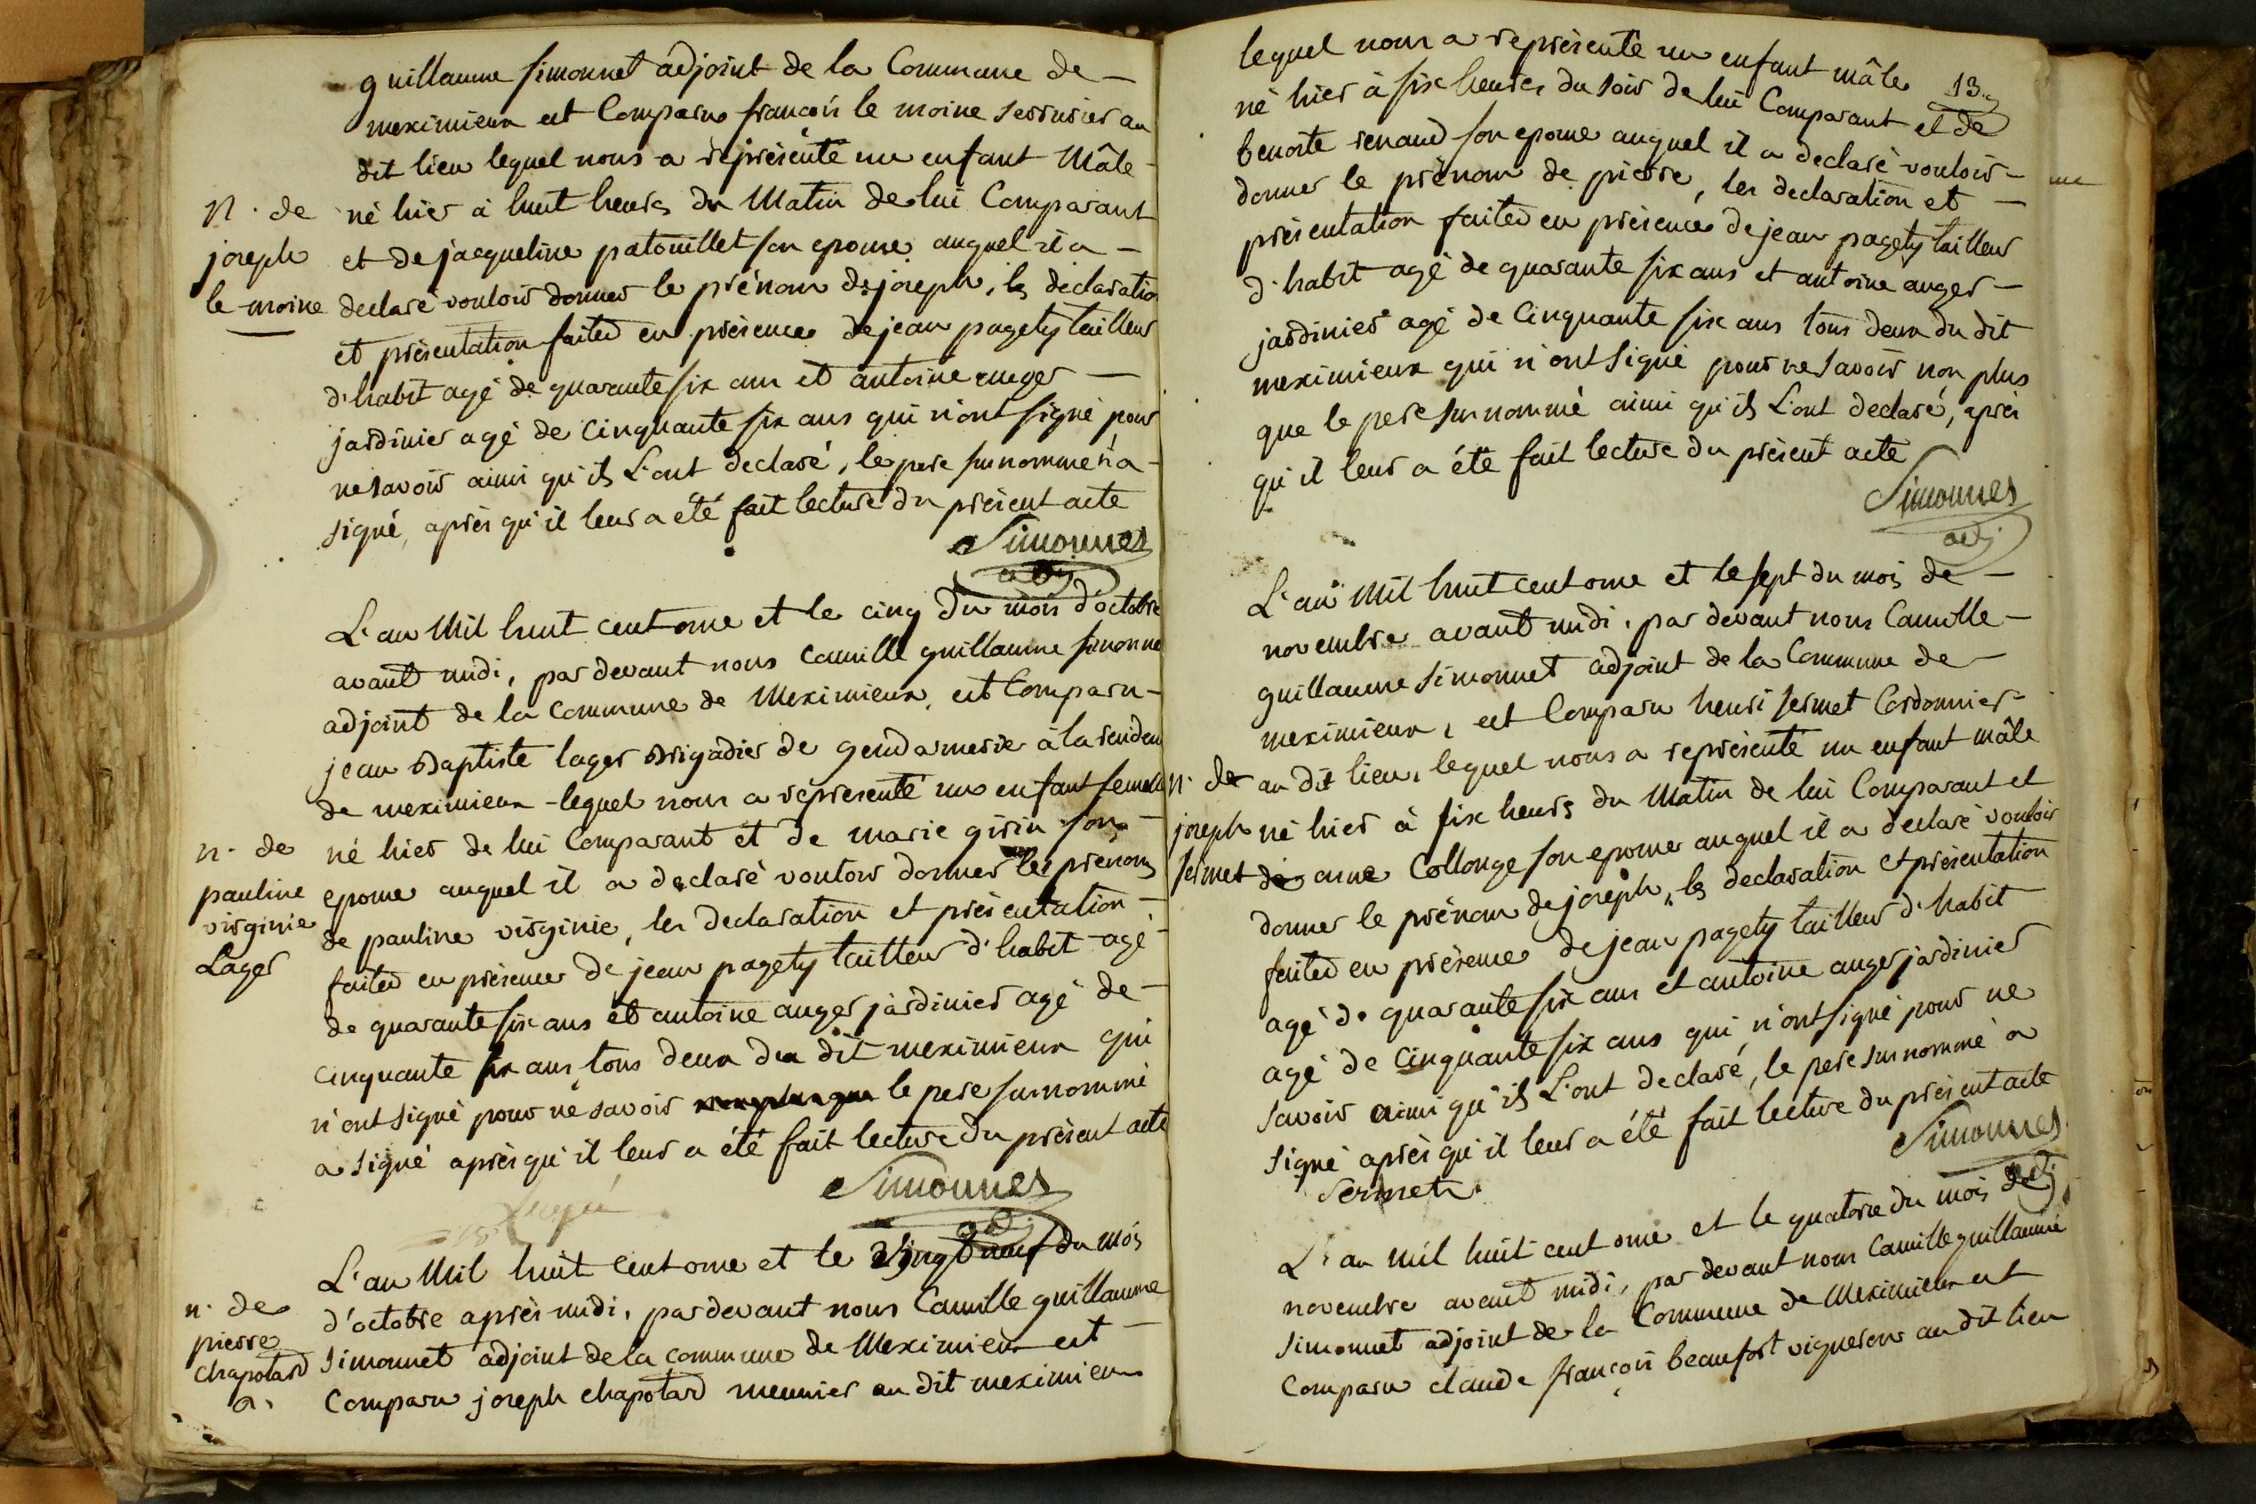 guillaume simonnet adjoint de la Commune de
meximieux est Comparu françois le moine serrurier au
dit lieu lequel nous a représenté un enfant Mâle
né hier à huit heures du Matin de lui Comparant
et de jacqueline patouillet son epouse auquel il a
declaré vouloir donner le prénom de joseph, les déclaration
et présentation faites en présence de jean pagety tailleur
d'habit agé de quarante six ans et antoine auger
jardinier agé de Cinquante six ans qui n'ont signé pour
ne savoir ainsi qu'ils L'ont declaré, le pere surnommé n'a
signé, après qu'il leur a été fait lecture du présent acte
Simonnet
adj
n. de
joseph
le moine
L'an Mil huit cent onze et le cinq du mois d'octobre
avant midi, par devant nous camille guillaume simonne
adjoint de la Commune de Meximieux, est Comparu
jean Baptiste lager Brigadier de gendarmerie à la
de meximieux lequel nous a réprésenté un enfant femelle
né hier de lui Comparant et de marie girin son
epouse auquel il a declaré vouloir donner les prénoms
de pauline virginie, les declaration et présentation
faites en présence de jean pagety tailleur d'habit agé
de quarante six ans et antoine auger jardinier agé de
cinquante six ans, tous deux du dit meximieux qui
n'ont signé pour ne savoir le pere surnommé
a signé après qu'il leur a été fait lecture du présent acte
Simonnet
adj
n. de
pauline
virginie
Lager
L'an Mil huit cent onze et le vingt neuf du mois
d'octobre après midi, par devant nous Camille guillaume
simonnet adjoint de la commune de Meximieux est
Comparu joseph chapotard meunier au dit meximieux
n. de
pierre
chapotard
13
lequel nous a représenté un enfant mâle
né hier à six heures du soir de lui Comparant et de
benoite renaud son epouse auquel il a declaré vouloir
donner le prénom de pierre, les declaration et
présentation faites en présence de jean pagety tailleur
d'habit agé de quarante six ans et antoine auger
jardinier agé de Cinquante six ans tous deux du dit
meximieux qui n'ont signé pour ne savoir non plus
que le pere surnommé ainsi qu'ils L'ont declaré, après
qu'il leur a été fait lecture du présent acte
Simonnet
adj
L'an Mil huit cent onze et le sept du mois de
novembre avant midi, par devant nous Camille
guillaume simonnet adjoint de la Commune de
meximieux, est Comparu henri sermet Cordonnier
au dit lieu, lequel nous a représenté un enfant mâle
né hier à six heures du Matin de lui Comparant et
de anne Collonge son epouse auquel il a declaré vouloir
donner le prénom de joseph, les declaration et présentation
faites en présence de jean pagety tailleur d'habit
agé de quarante six ans et antoine auger jardinier
agé de Cinquante six ans qui n'ont signé pour ne
savoir ainsi qu'ils L'ont declaré, le pere surnommé a
signé après qu'il leur a été fait lecture du présent acte
Simonnet
adj
Sermet
n. de
joseph
sermet
L'an mil huit cent onze et le quatorze du mois de
novembre avant midi, par devant nous Camille guillaume
simonnet adjoint de la Commune de Meximieux est
Comparu claude françois beaufort vigneron au dit lieu